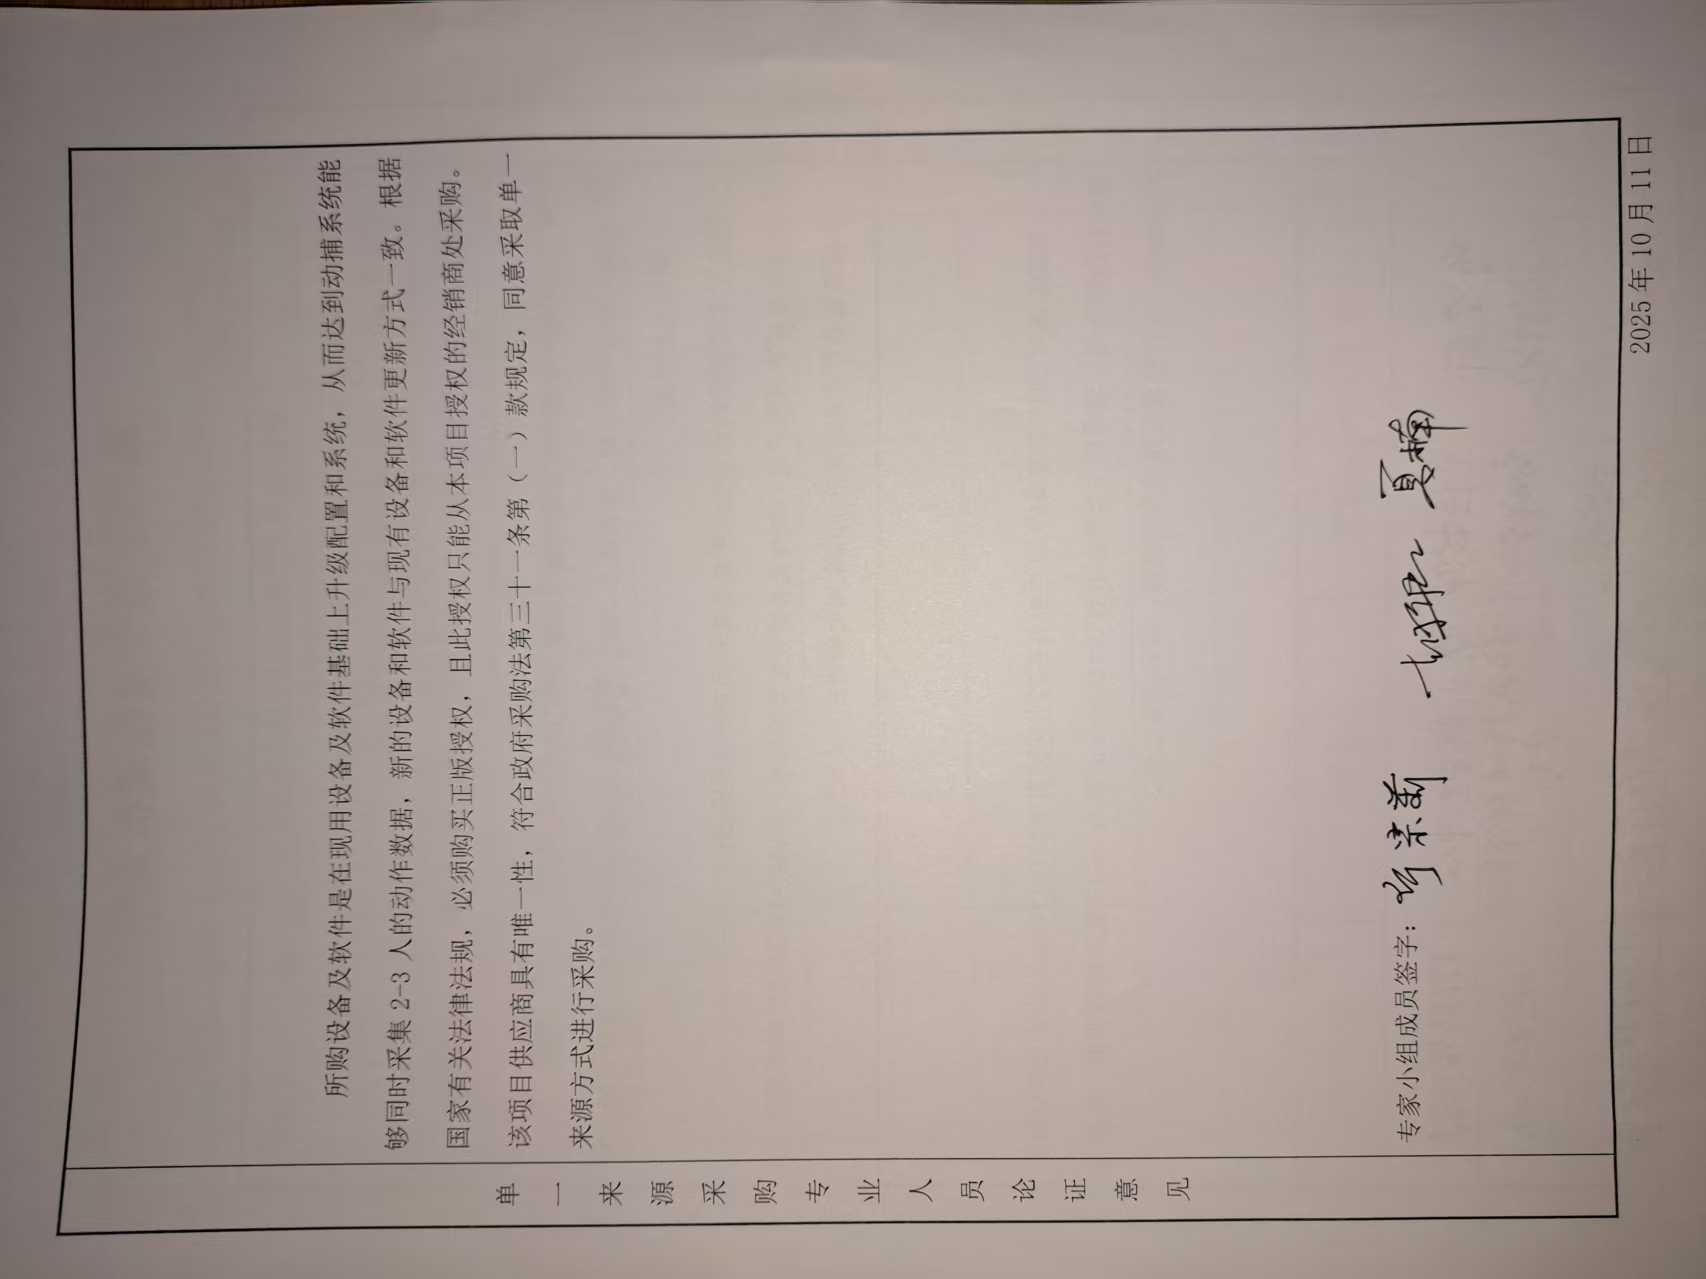 单一来源采购专业人员论证意见
所购设备及软件是在现用设备及软件基础上升级配置和系统，从而达到动捕系统能
够同时采集 2-3 人的动作数据，新的设备和软件与现有设备和软件更新方式一致。根据
国家有关法律法规，必须购买正版授权，且此授权只能从本项目授权的经销商处采购。
该项目供应商具有唯一性，符合政府采购法第三十一条第（一）款规定，同意采取单一
来源方式进行采购。
专家小组成员签字：
2025 年 10 月 11 日